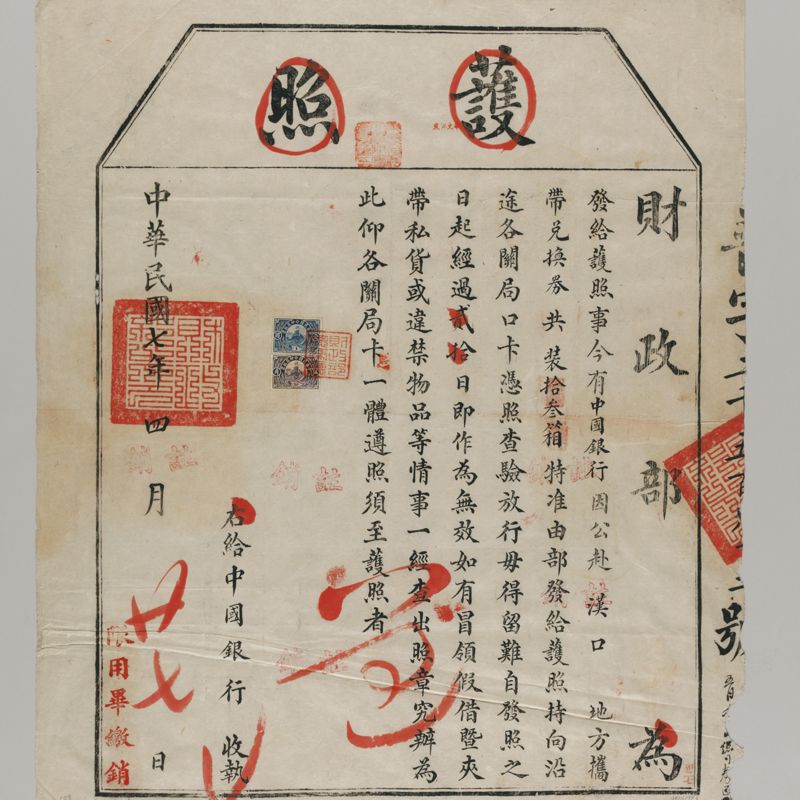 護照
財政部為
發給護照事今有中國銀行因公赴漢口地方攜
帶兌換券共裝拾叁箱特准由部發給護照持向沿
途各關局口卡憑照查驗放行毋得留難自發照之
日起經過貳拾日即作為無效如有冒領假借暨夾
帶私貨或違禁物品等情事一經查出照章究辦為
此仰各關局卡一體遵照須至護照者
右給中國銀行收執
中華民國七年四月廿七日
限用畢繳銷
註銷
註銷
號